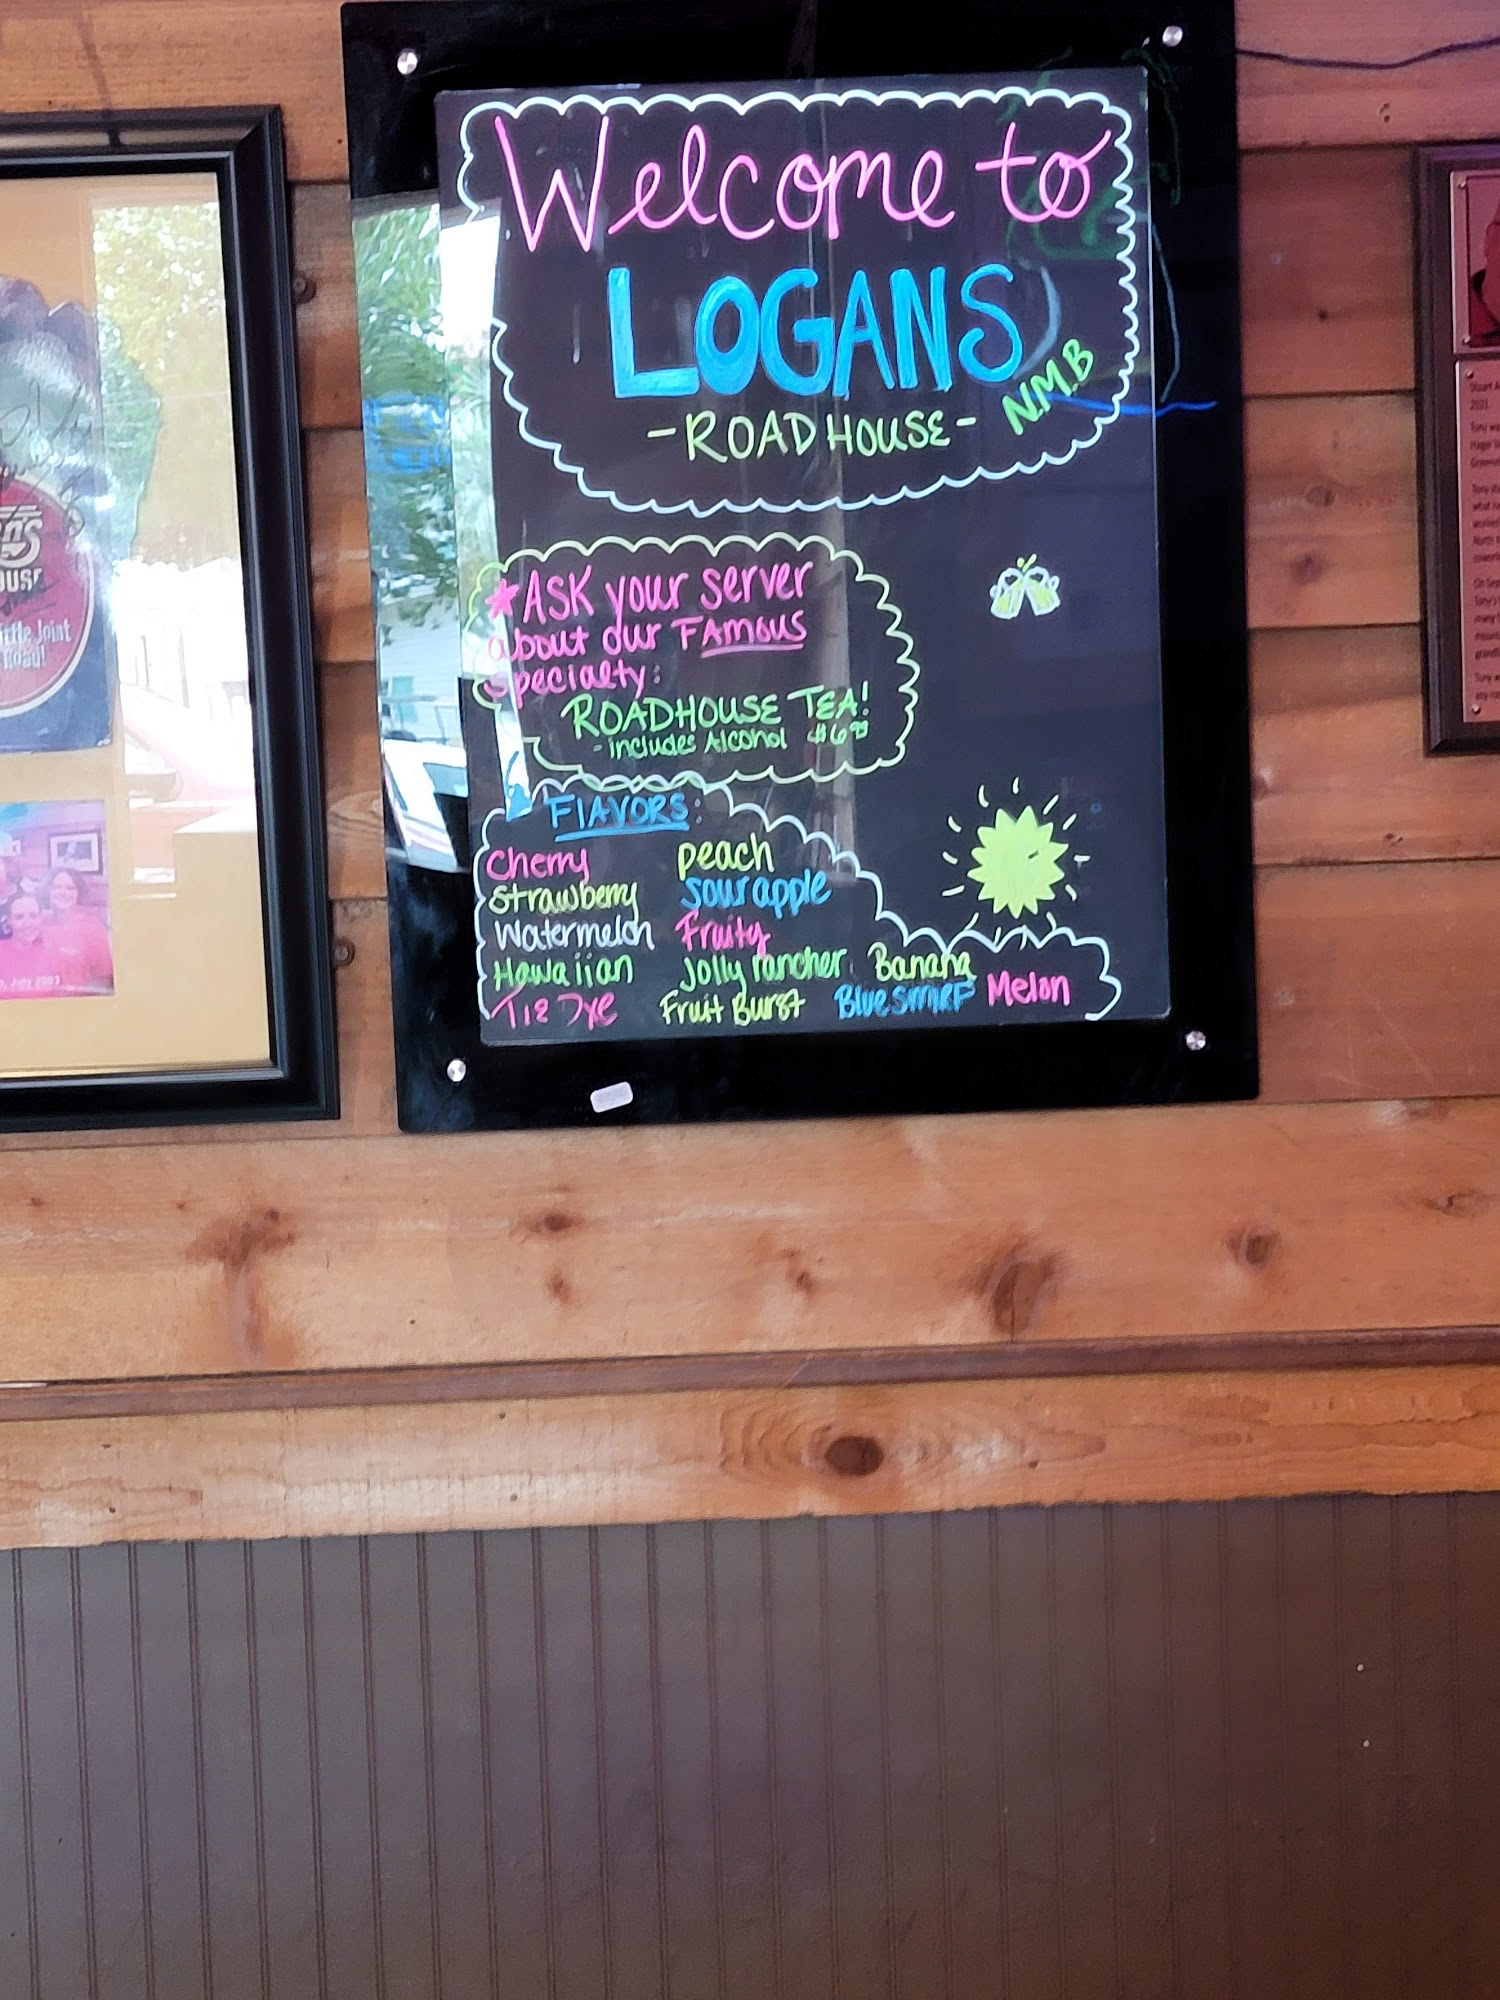 Welcome to
LOGANS
-ROADHOUSE-
N.M.B
ASK your server
about our FAmous
Specialty:
ROADHOUSE TEA!
-includes Alcohol $6.99
FlAVORS:
Cherry peach
Strawberry sour apple
Watermelon Fruity
Hawaiian Jolly rancher Banana
Tie Dye Fruit Burst Blue smirf Melon
ittle Joint
Road!
July 2003
2021.